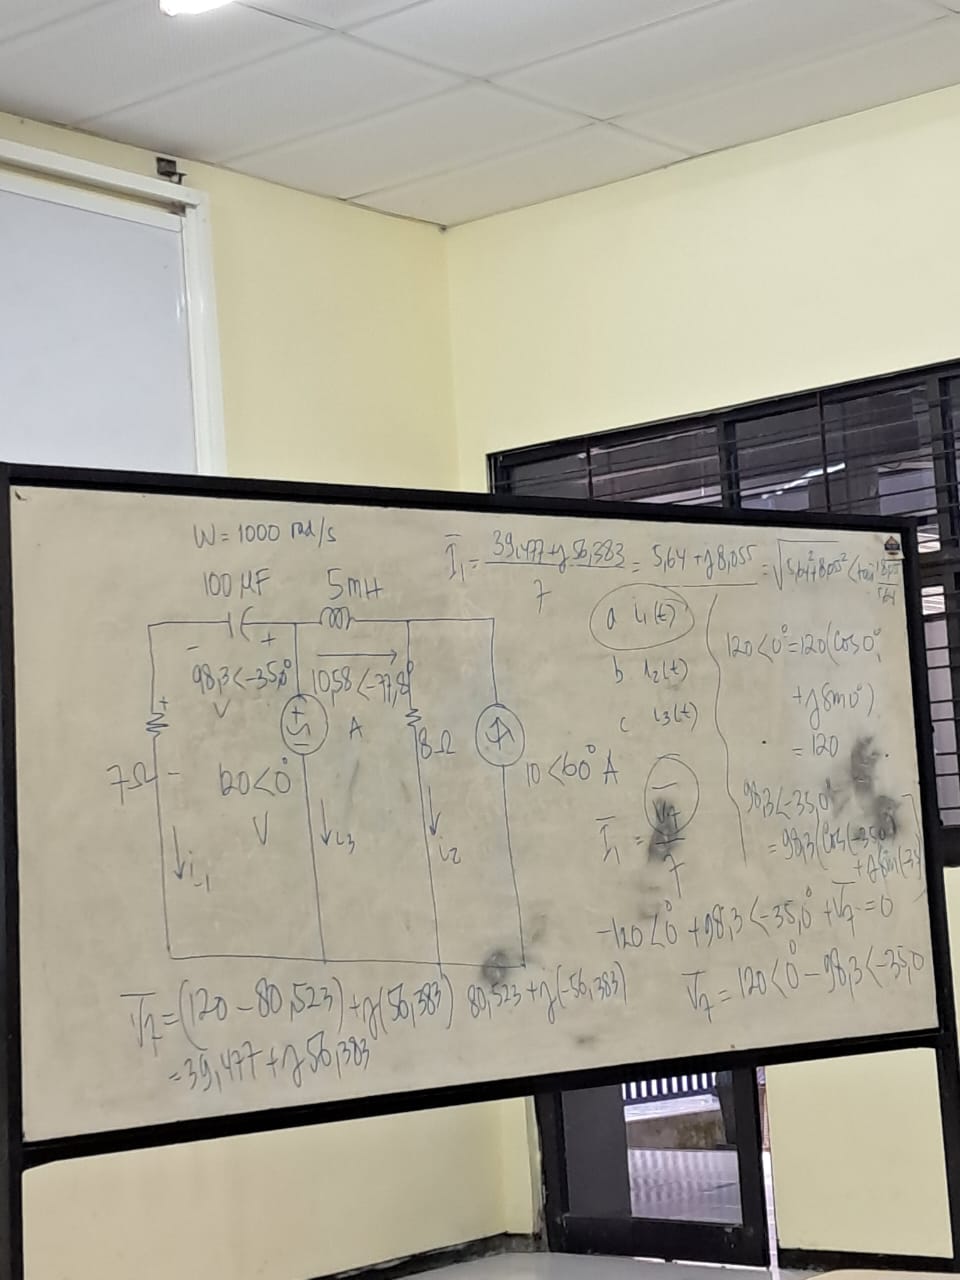 W = 1000 rad/s
100 μF
5mH
-
+
98,3<-35,0°
V
10,58<-77,8°
A
+
7Ω
-
+
-
120<0°
V
8Ω
10<60° A
i1
i3
i2
I̅1 = (39,477+j56,383)/7 = 5,64 + j8,055 = √(5,64²+8,055²) <tan⁻¹ 8,055/5,64
a i1(t)
b i2(t)
c i3(t)
I̅1 = V̅7/7
120<0° = 120(cos 0°
+ j sin 0°)
= 120
98,3<-35,0°
= 98,3(cos(-35,0°)
+ j sin(-35
-120<0° + 98,3<-35,0° + V̅7 = 0
V̅7 = 120<0° - 98,3<-35,0
80,523 + j(-56,383)
V̅7 = (120 - 80,523) + j(56,383)
= 39,477 + j56,383